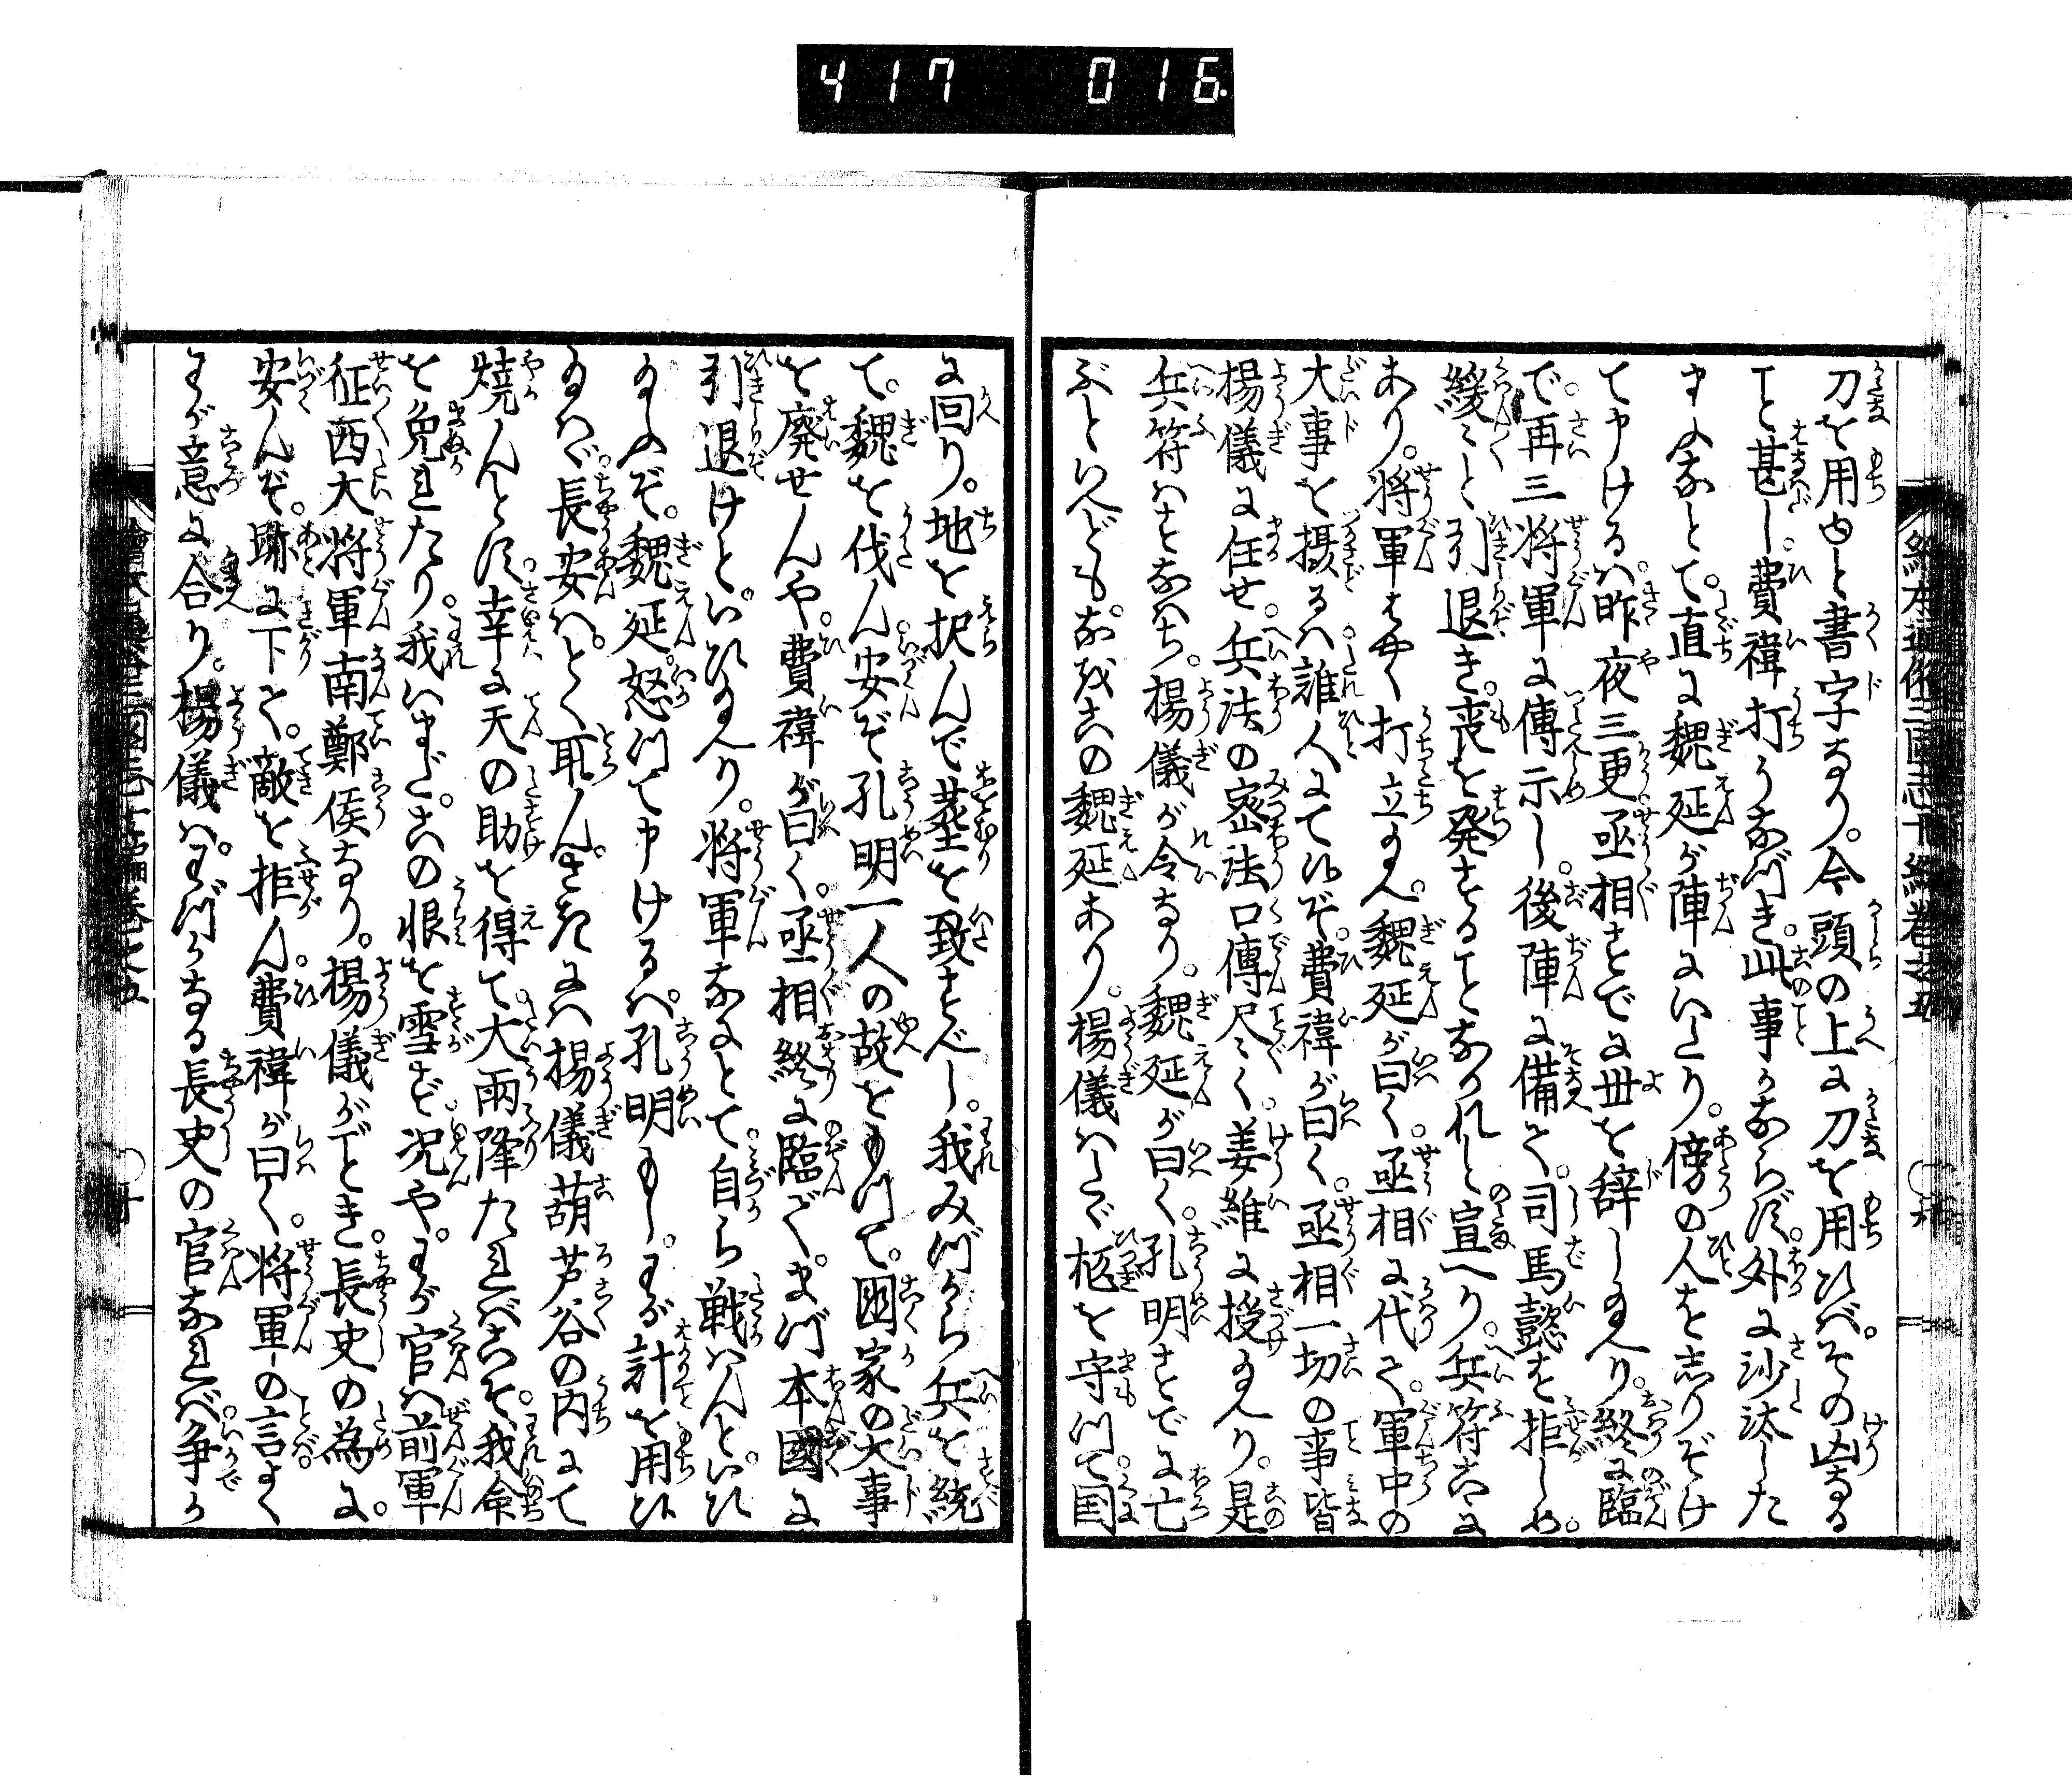 417 016
刀を用ゆと書字なり。今頭の上に刀を用ひば。その凶なる
こと甚し。費禕打うなづき。此事かならず。外に沙汰した
まふなとて。直に魏延が陣にいたり。傍の人をしりぞけ
て申けるは。昨夜三更丞相すでに世を辞し給へり。終に臨
で。再三将軍に傳示し。後陣に備て。司馬懿を拒しめ。
緩〻と引退き。喪を発することなかれと宣へり。兵符こゝに
あり。将軍はやく打立給へ。魏延が曰く。丞相に代て。軍中の
大事を摂るは誰人にて候ぞ。費禕が曰く。丞相一切の事皆
楊儀に任せ。兵法の密法口傳尽〻く。姜維に授給へり。是
兵符はすなはち。楊儀が令なり。魏延が曰く。孔明すでに亡
ぶといへども。なほこの魏延あり。楊儀はたゞ柩を守つて。国
に回り。地を択んで葬を致すべし。我みづから兵を統
て。魏を伐ん。安ぞ孔明一人の故をもつて。国家の大事
を廃せんや。費禕が曰く。丞相終に臨で。まづ本國に
引退けと。いひ給へり。将軍なにとて。自ら戦はんと。いひ
給ふぞ。魏延怒つて申けるは。孔明もし。わが計を用ひ
なば。長安はとく取ん。さきには楊儀葫芦谷の内にて
焼んとす。幸に天の助を得て。大雨降たればこそ。我命
を免れたり。我いまだ。この恨を雪ず。况や。わが官は前軍
征西大将軍南鄭侯なり。楊儀がごとき。長史の為に。
安んぞ。跡に下て。敵を拒ん。費禕が曰く。将軍の言よく
わが意に合り。楊儀は。わづかなる長史の官なれば。争か